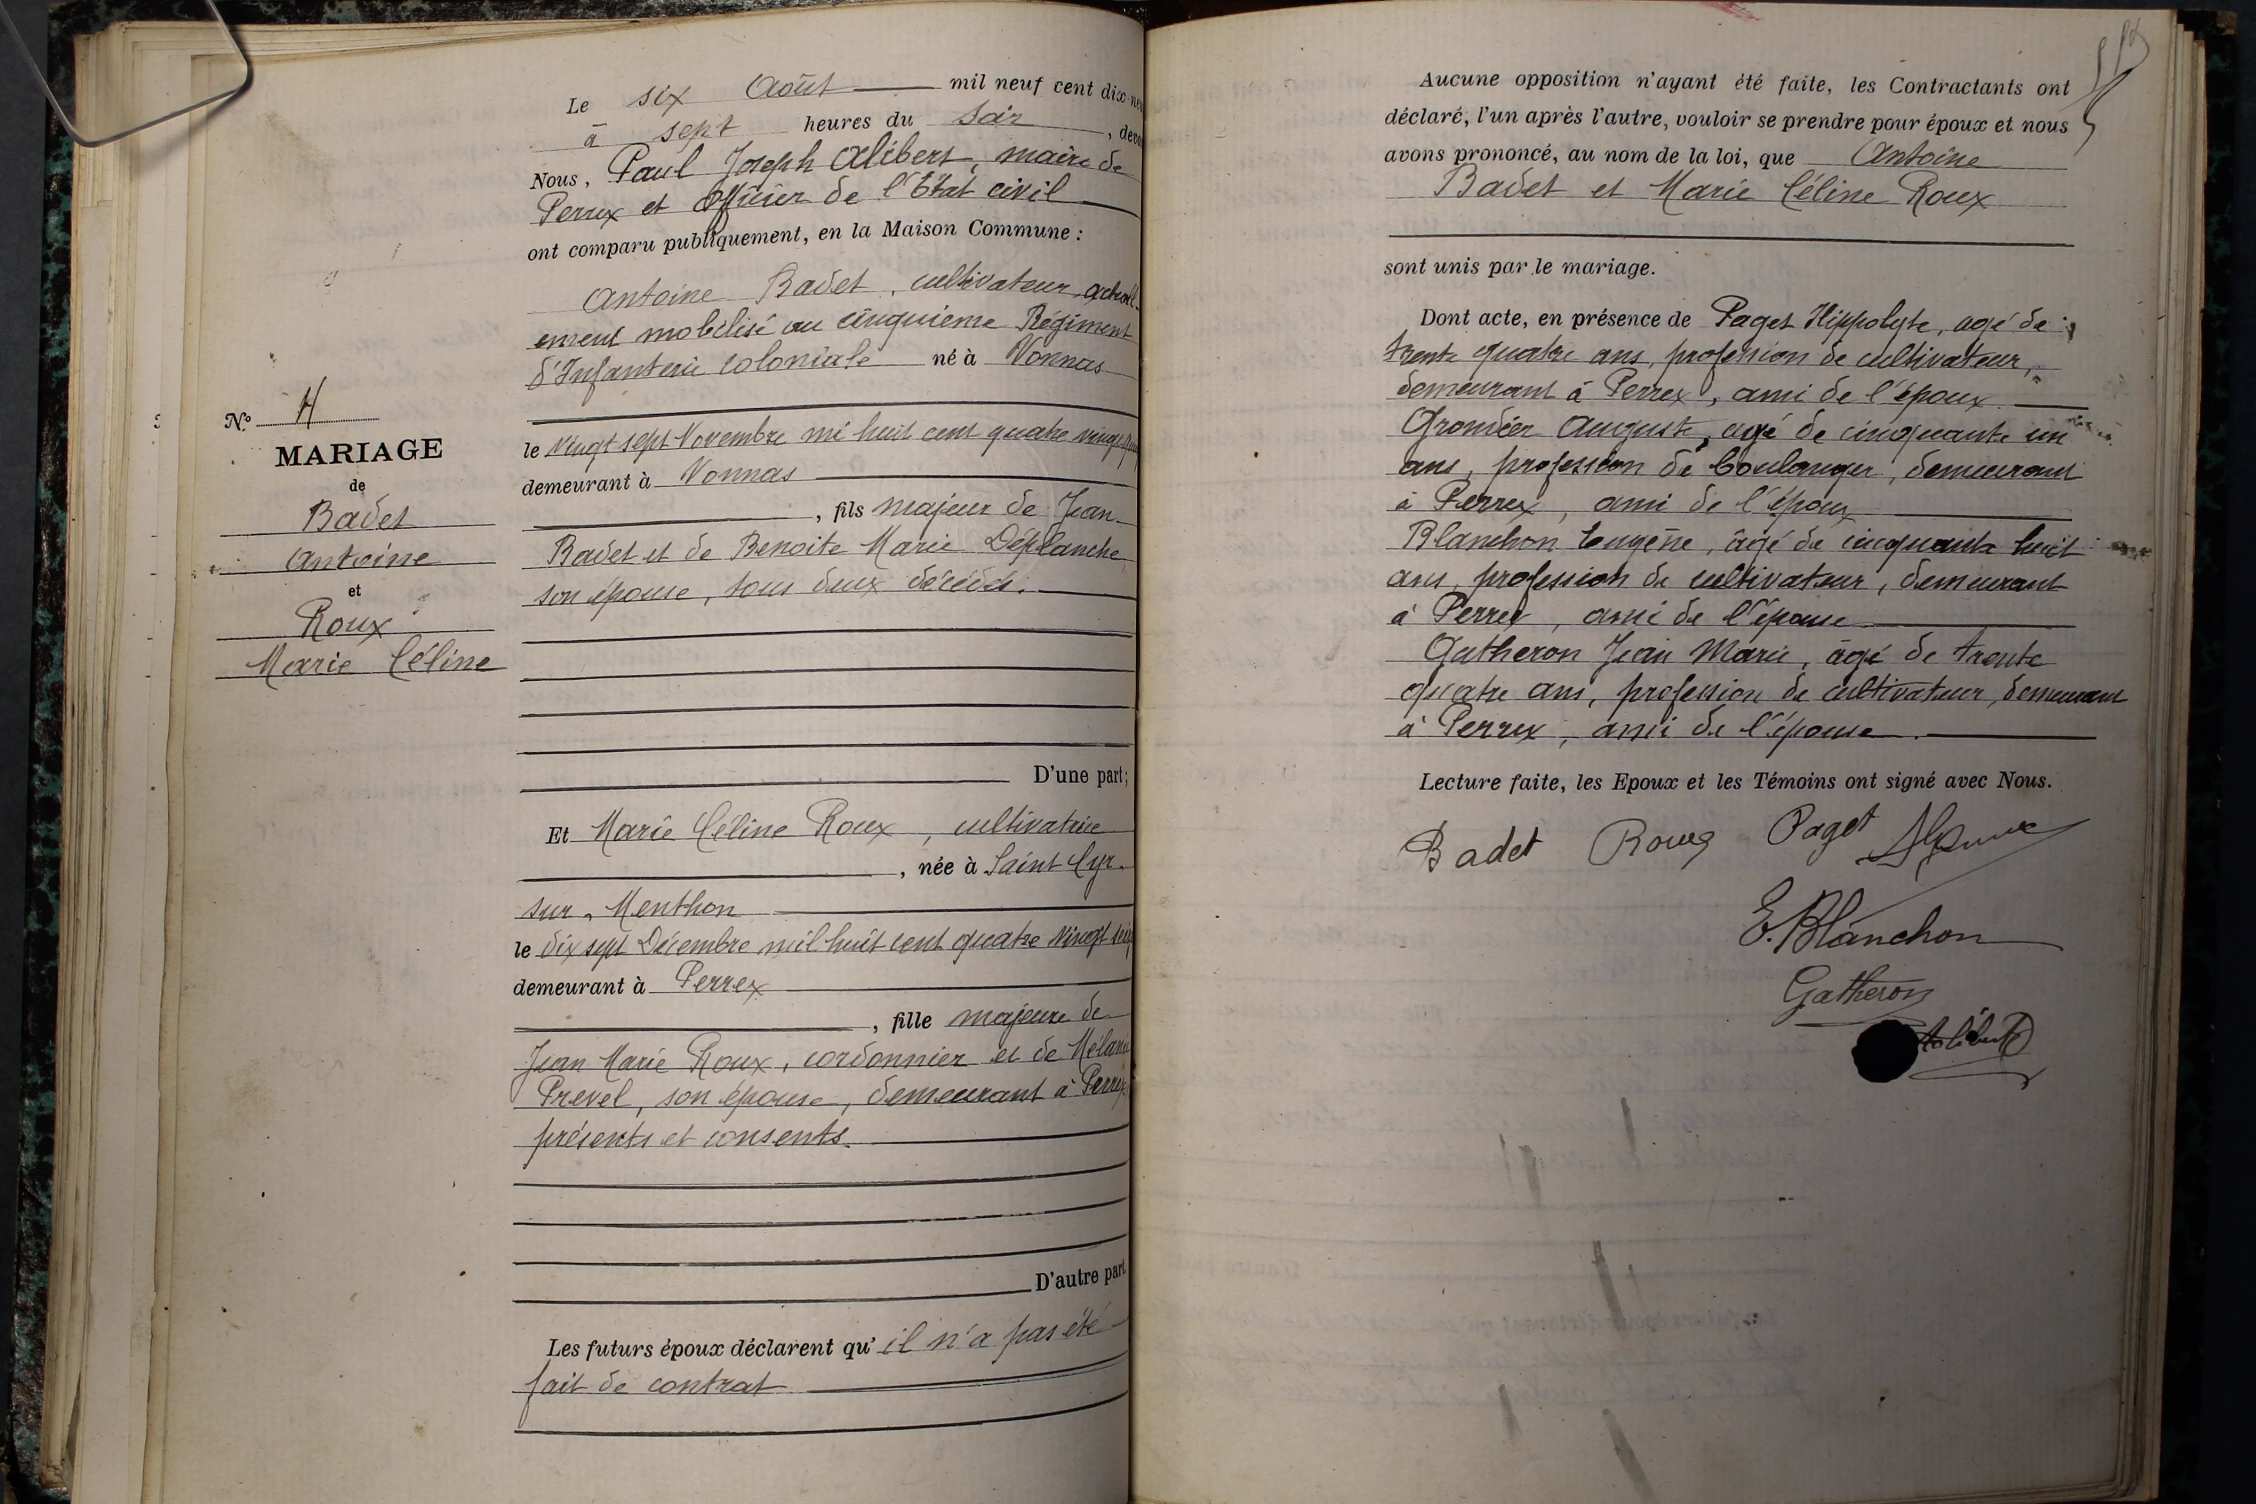 Le six Août mil neuf cent dix-
à sept heures du soir,
Nous, Paul Joseph Alibert, maire de
Perrex et Officier de l'Etat civil
ont comparu publiquement, en la Maison Commune :
Antoine Badet, cultivateur, actuell-
ement mobilisé au cinquième Régiment
d'Infanterie coloniale né à Vonnas
le vingt sept Novembre mi huit cent quatre vingt
demeurant à Vonnas
, fils majeur de Jean
Badet et de Benoite Marie Déplanche
son épouse, tous deux décédés.
D'une part;
Et Marie Céline Roux, cultivatrice
, née à Saint Cyr-
sur-Menthon
le dix sept Décembre mil huit cent quatre vingt
demeurant à Perrex
, fille majeure de
Jean Marie Roux, cordonnier et de Melanie
Prevel, son épouse, demeurant à Perrex
présents et consents.
D'autre part
Les futurs époux déclarent qu' il n'a pas été
fait de contrat
N° 4
MARIAGE
de
Badet
Antoine
et
Roux
Marie Céline
Aucune opposition n'ayant été faite, les Contractants ont
déclaré, l'un après l'autre, vouloir se prendre pour époux et nous
avons prononcé, au nom de la loi, que Antoine
Badet et Marie Céline Roux
sont unis par le mariage.
Dont acte, en présence de Paget Hippolyte, agé de
trente quatre ans, profession de cultivateur,
demeurant à Perrex, ami de l'époux
Grondier Auguste, agé de cinquante un
ans, profession de boulanger, demeurant
à Perrex, ami de l'époux
Blanchon Eugène, âgé de cinquante huit
ans, profession de cultivateur, demeurant
à Perrex, ami de l'épouse
Gatheron Jean Marie, âgé de trente
quatre ans, profession de cultivateur, demeurant
à Perrex, ami de l'épouse.
Lecture faite, les Epoux et les Témoins ont signé avec Nous.
Badet Roux Paget
E. Blanchon
Gatheron
Alibert